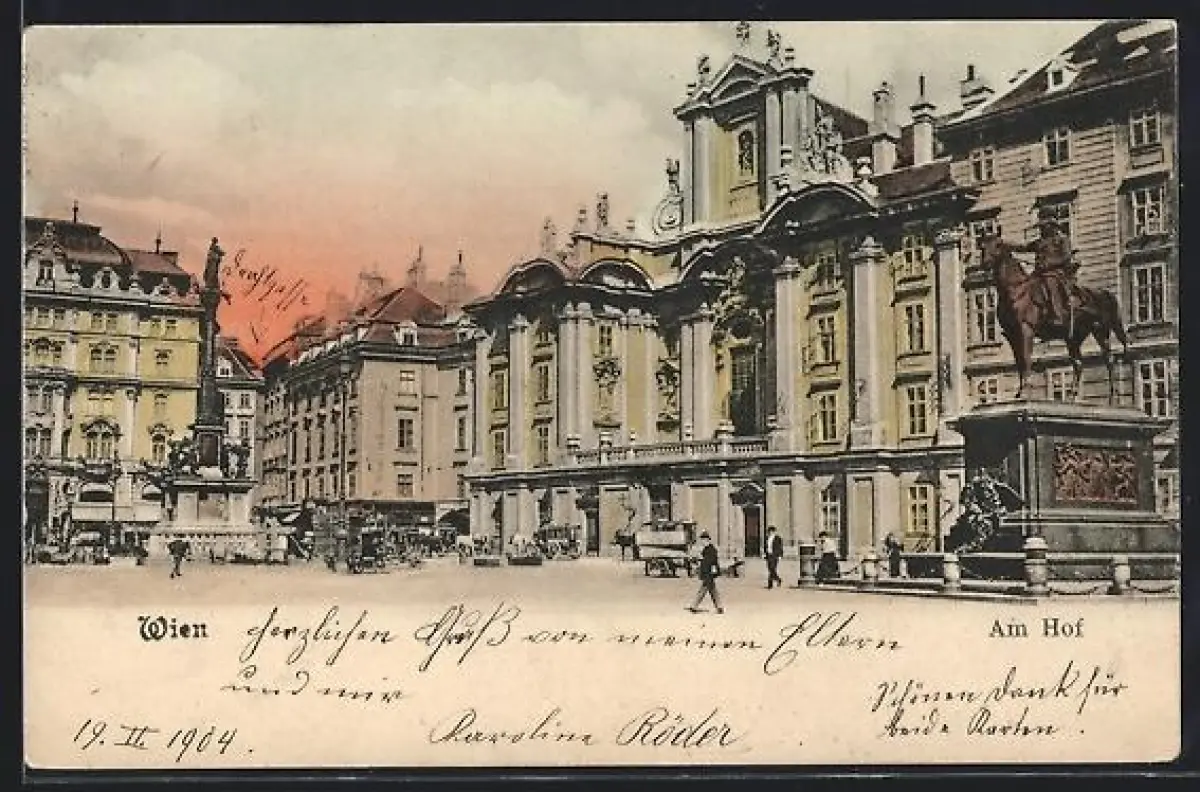 Wien
herzlichen Gruß von meinen Eltern
und mir
Am Hof
Schönen Dank für
beide Karten.
19. II. 1904.
Karoline Röder